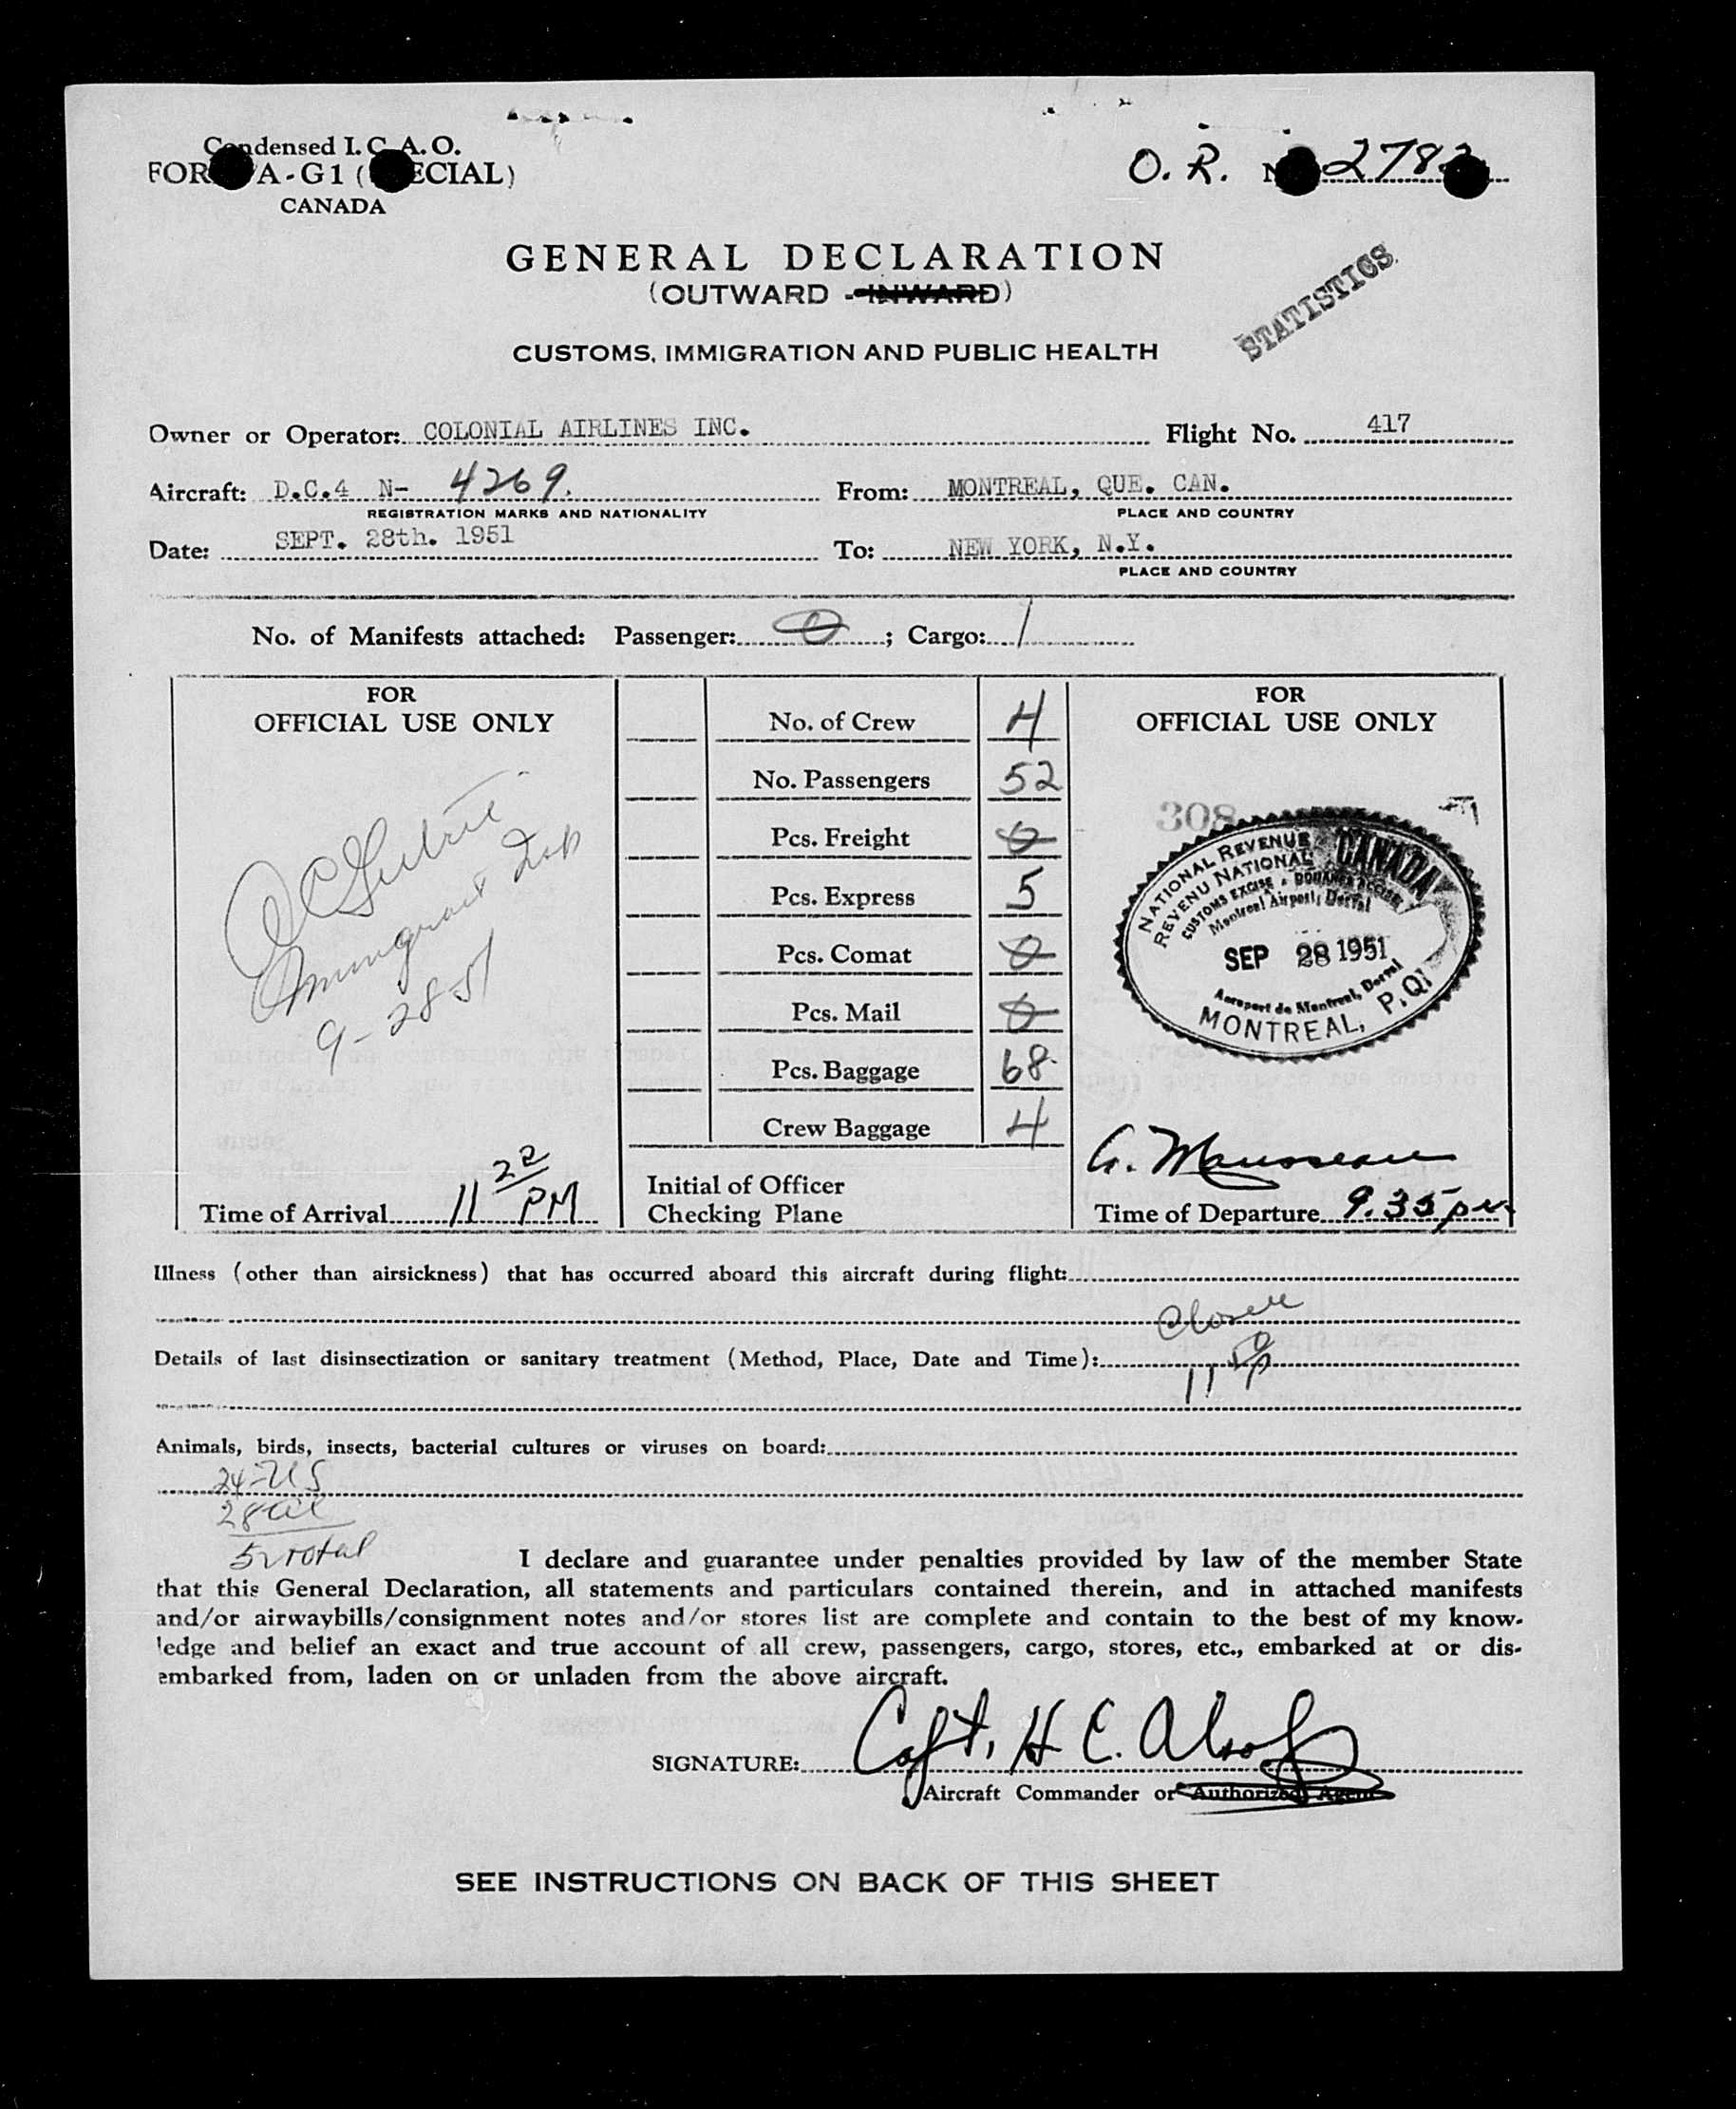 Condensed I. C. A. O.
FORM A-G1 (SPECIAL)
CANADA
O. R. No. 2782
GENERAL DECLARATION
(OUTWARD - INWARD)
STATISTICS
CUSTOMS, IMMIGRATION AND PUBLIC HEALTH
Owner or Operator: COLONIAL AIRLINES INC. Flight No. 417
Aircraft: D.C.4 N- 4269. From: MONTREAL, QUE. CAN.
REGISTRATION MARKS AND NATIONALITY PLACE AND COUNTRY
Date: SEPT. 28th. 1951 To: NEW YORK, N.Y.
PLACE AND COUNTRY
No. of Manifests attached: Passenger: 0; Cargo: 1
FOR
OFFICIAL USE ONLY
9-28-51
Time of Arrival 11 22 PM
No. of Crew 4
No. Passengers 52
Pcs. Freight 0
Pcs. Express 5
Pcs. Comat 0
Pcs. Mail 0
Pcs. Baggage 68
Crew Baggage 4
Initial of Officer
Checking Plane
FOR
OFFICIAL USE ONLY
308
NATIONAL REVENUE CANADA
REVENU NATIONAL
CUSTOMS EXCISE & DOUANES ACCISE
Montreal Airport, Dorval
SEP 28 1951
Aeroport de Montreal, Dorval
MONTREAL, P.Q.
G. Mousseau
Time of Departure 9.35 pm
Illness (other than airsickness) that has occurred aboard this aircraft during flight:
Details of last disinsectization or sanitary treatment (Method, Place, Date and Time):
Animals, birds, insects, bacterial cultures or viruses on board:
24-US
28 al
52 total
I declare and guarantee under penalties provided by law of the member State
that this General Declaration, all statements and particulars contained therein, and in attached manifests
and/or airwaybills/consignment notes and/or stores list are complete and contain to the best of my know-
ledge and belief an exact and true account of all crew, passengers, cargo, stores, etc., embarked at or dis-
embarked from, laden on or unladen from the above aircraft.
SIGNATURE: Capt. H C. Alsop
Aircraft Commander or Authorized Agent
SEE INSTRUCTIONS ON BACK OF THIS SHEET